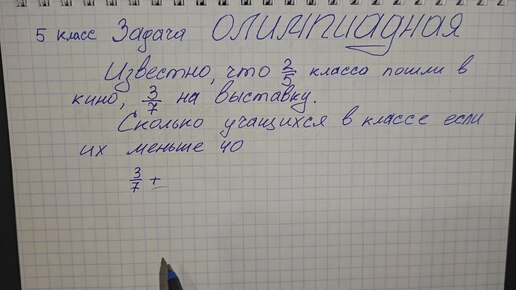 5 класс Задача ОЛИМПИАДНАЯ
Известно, что 2/5 класса пошли в
кино, 3/7 на выставку.
Сколько учащихся в классе если
их меньше 40
3/7 +